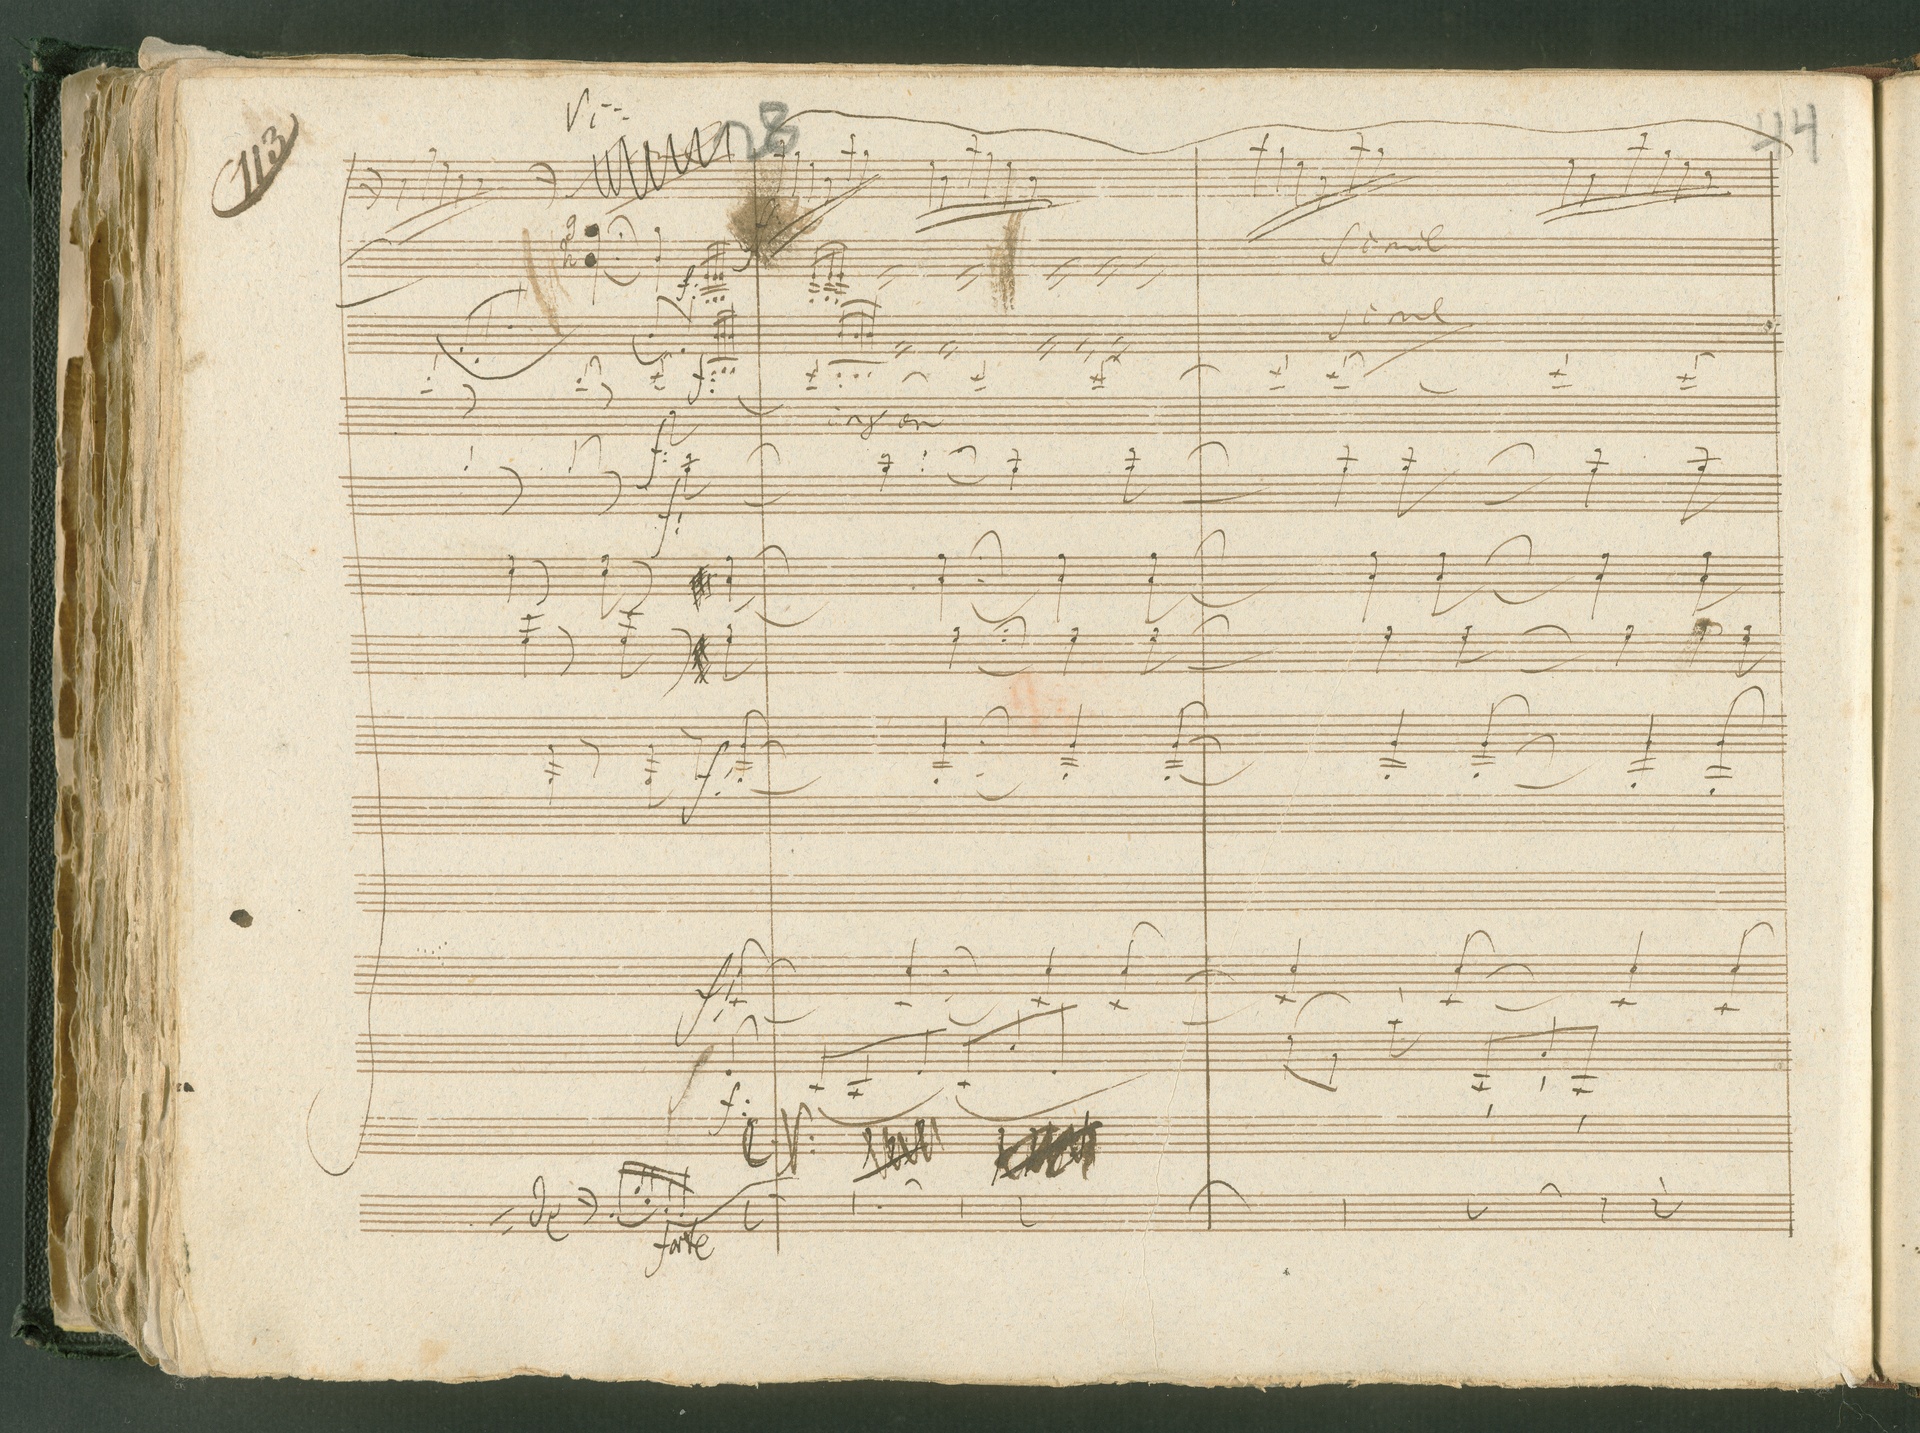 113
Vi-
28
44
g
h
f:
simil
simil
f:
f:
f:
f:
f:
f:
C. V:
forte